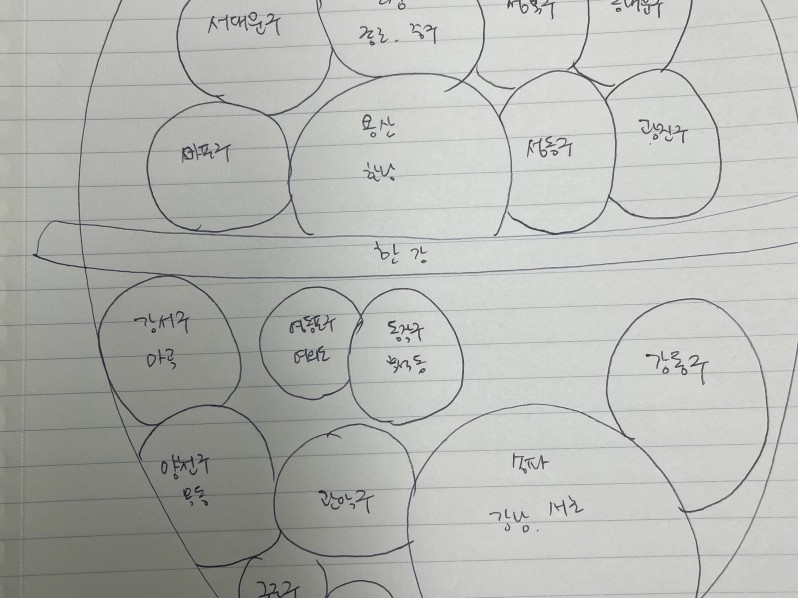 서대문구
종로. 중구
성북구
동대문구
마포구
용산
한남
성동구
광진구
한강
강서구
마곡
영등포구
여의도
동작구
흑석동
강동구
양천구
목동
관악구
송파
강남. 서초
구로구